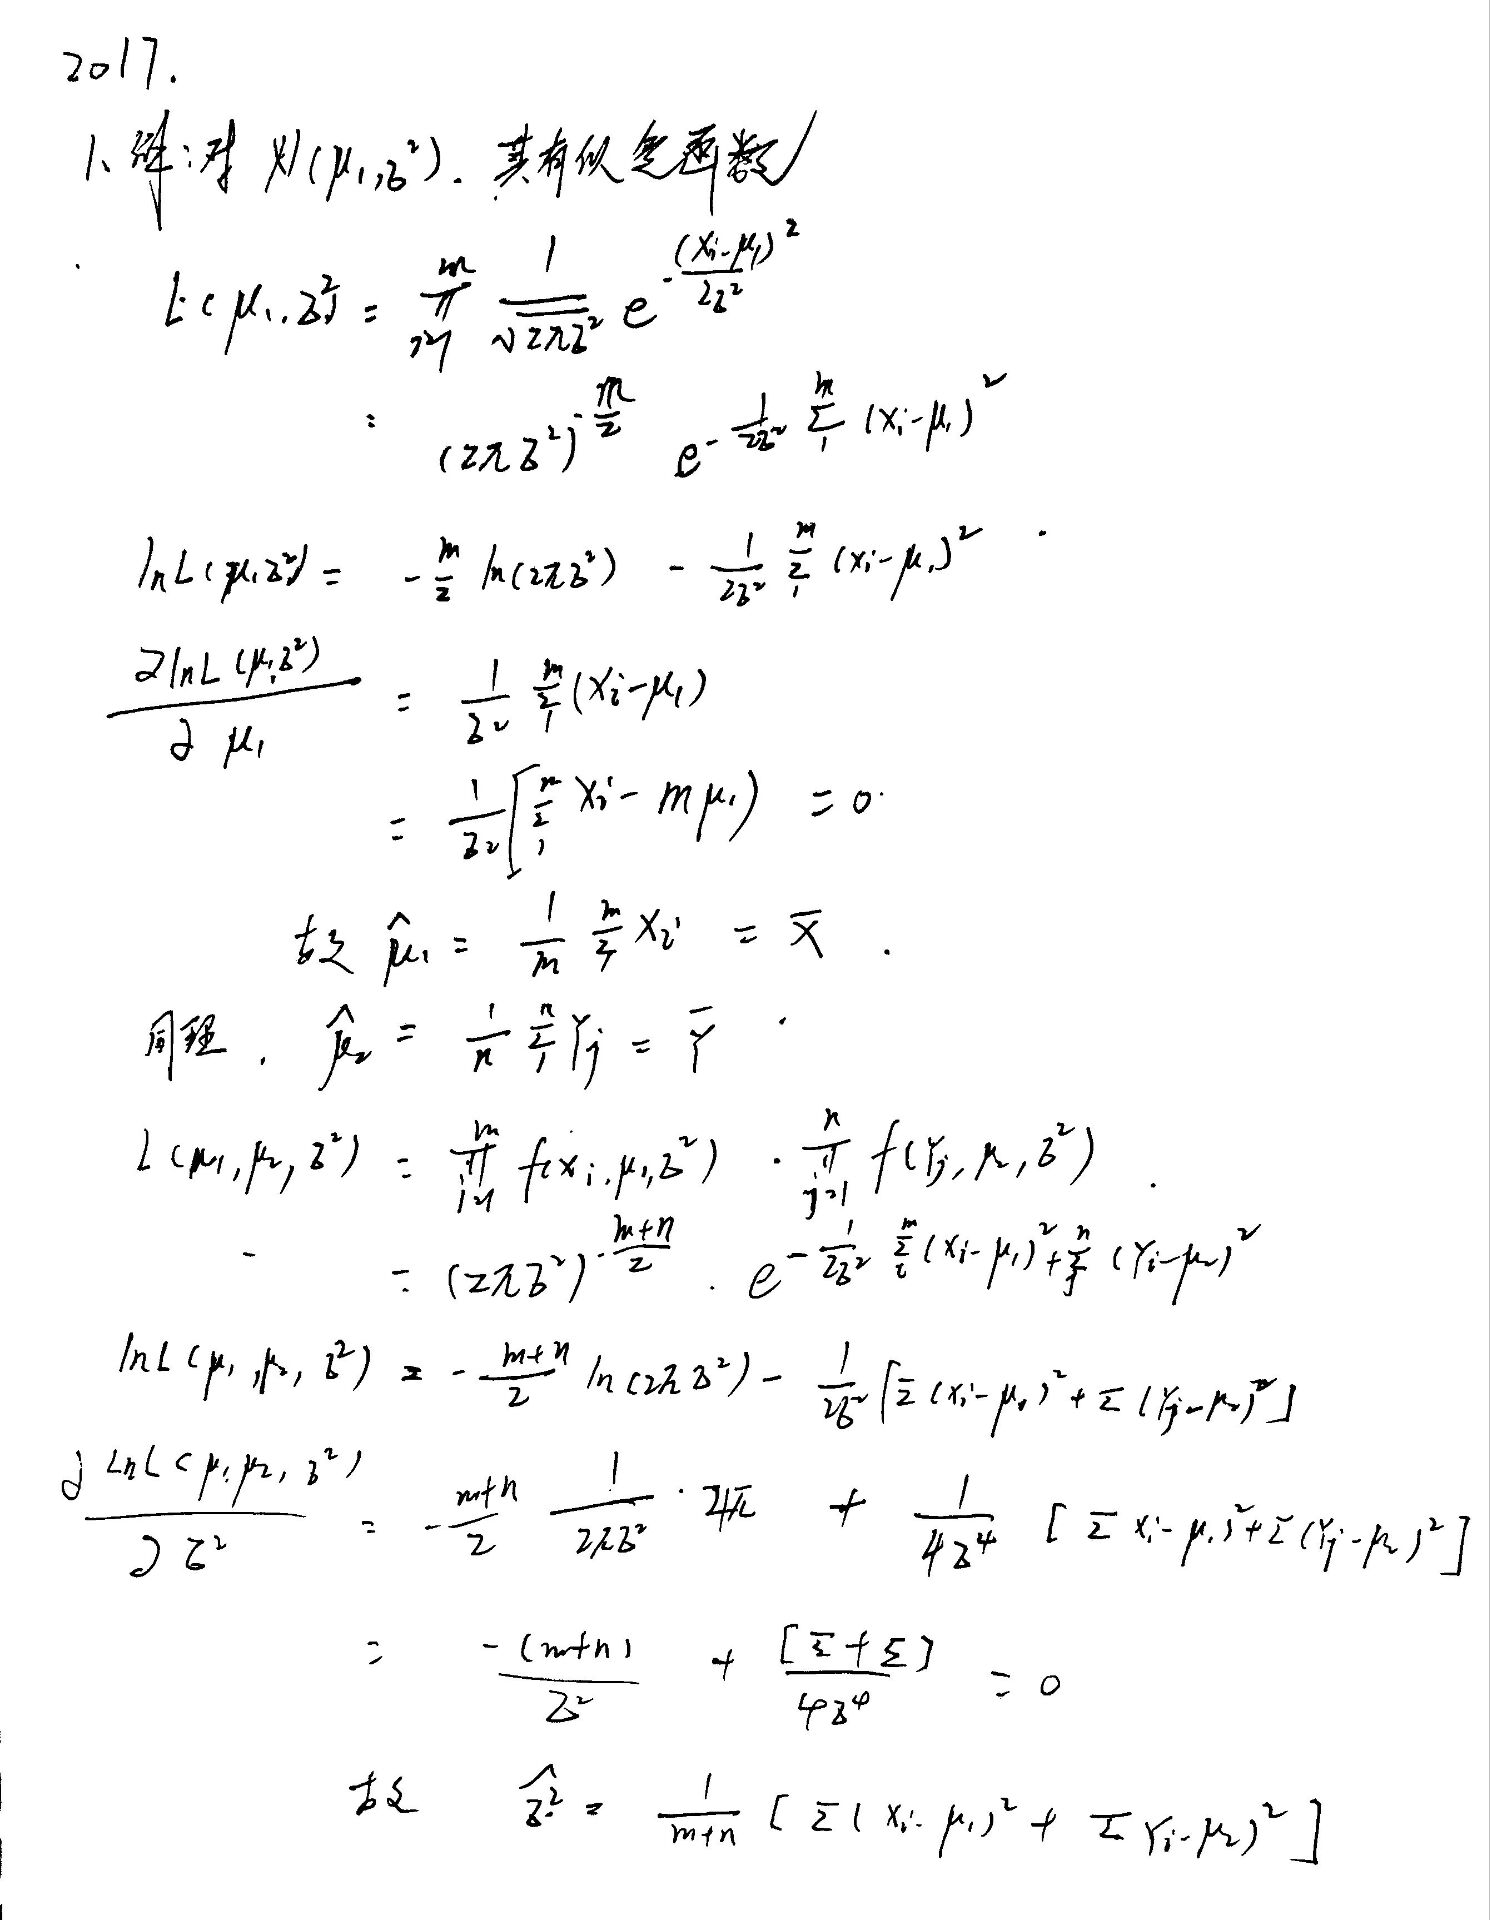 2017.
1、解：对 N(μ₁,σ²). 其有似然函数
L(μ₁,σ²) = ∏_{i=1}^{m} \frac{1}{\sqrt{2πσ²}} e^{-\frac{(x_i-μ₁)²}{2σ²}}
= (2πσ²)^{-\frac{m}{2}} e^{-\frac{1}{2σ²} ∑_{1}^{m} (x_i-μ₁)²}
lnL(μ₁,σ²) = -\frac{m}{2} ln(2πσ²) - \frac{1}{2σ²} ∑_{1}^{m} (x_i-μ₁)²
\frac{∂lnL(μ₁,σ²)}{∂μ₁} = \frac{1}{σ²} ∑_{1}^{m} (x_i-μ₁)
= \frac{1}{σ²} [∑_{1}^{m} x_i - mμ₁) = 0.
故 \hat{μ}₁ = \frac{1}{m} ∑_{1}^{m} x_i = \bar{X}.
同理. \hat{μ}₂ = \frac{1}{n} ∑_{1}^{n} Y_j = \bar{Y}.
L(μ₁,μ₂,σ²) = ∏_{i=1}^{m} f(x_i,μ₁,σ²) · ∏_{j=1}^{n} f(Y_j,μ₂,σ²).
= (2πσ²)^{-\frac{m+n}{2}} · e^{-\frac{1}{2σ²} ∑_{i}^{m} (x_i-μ₁)² + ∑_{j}^{n} (Y_i-μ₂)²}
lnL(μ₁,μ₂,σ²) = -\frac{m+n}{2} ln(2πσ²) - \frac{1}{2σ²} [∑(x_i-μ₁)² + ∑(Y_j-μ₂)²]
\frac{∂LnL(μ₁,μ₂,σ²)}{∂σ²} = -\frac{m+n}{2} \frac{1}{2πσ²} · π + \frac{1}{4σ⁴} [∑ x_i-μ₁)² + ∑(Y_j-μ₂)²]
= \frac{-(m+n)}{σ²} + \frac{[∑+∑]}{4σ⁴} = 0
故 \hat{σ²} = \frac{1}{m+n} [∑(x_i-μ₁)² + ∑ Y_i-μ₂)²]